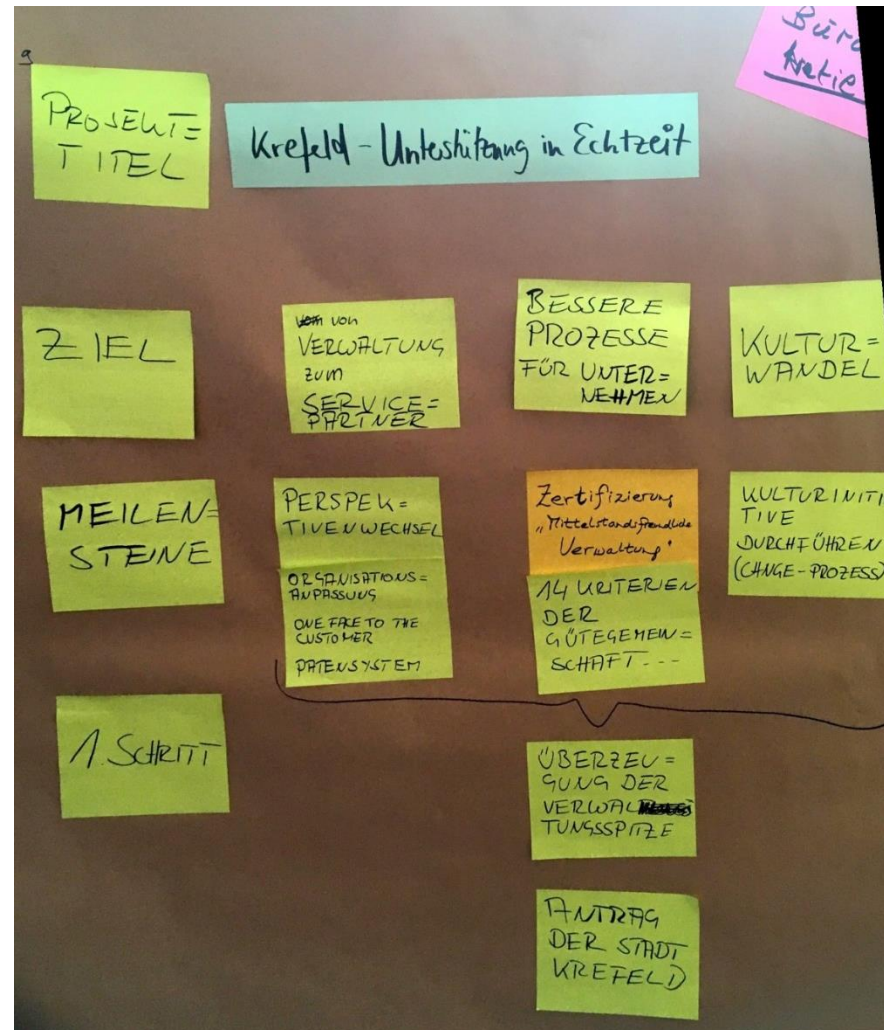 Büro
kratie
PROJEKT=
TITEL
Krefeld - Unterstützung in Echtzeit
ZIEL
von
VERWALTUNG
zum
SERVICE=
PARTNER
BESSERE
PROZESSE
FÜR UNTER=
NEHMEN
KULTUR=
WANDEL
MEILEN=
STEINE
PERSPEK=
TIVENWECHSEL
ORGANISATIONS=
ANPASSUNG
ONE FACE TO THE
CUSTOMER
PATENSYSTEM
Zertifizierung
„Mittelstandsfreundliche
Verwaltung"
14 KRITERIEN
DER
GÜTEGEMEIN=
SCHAFT...
KULTURINITI
TIVE
DURCHFÜHREN
(CHNGE-PROZESS)
1. SCHRITT
ÜBERZEU=
GUNG DER
VERWAL
TUNGSSPITZE
ANTRAG
DER STADT
KREFELD